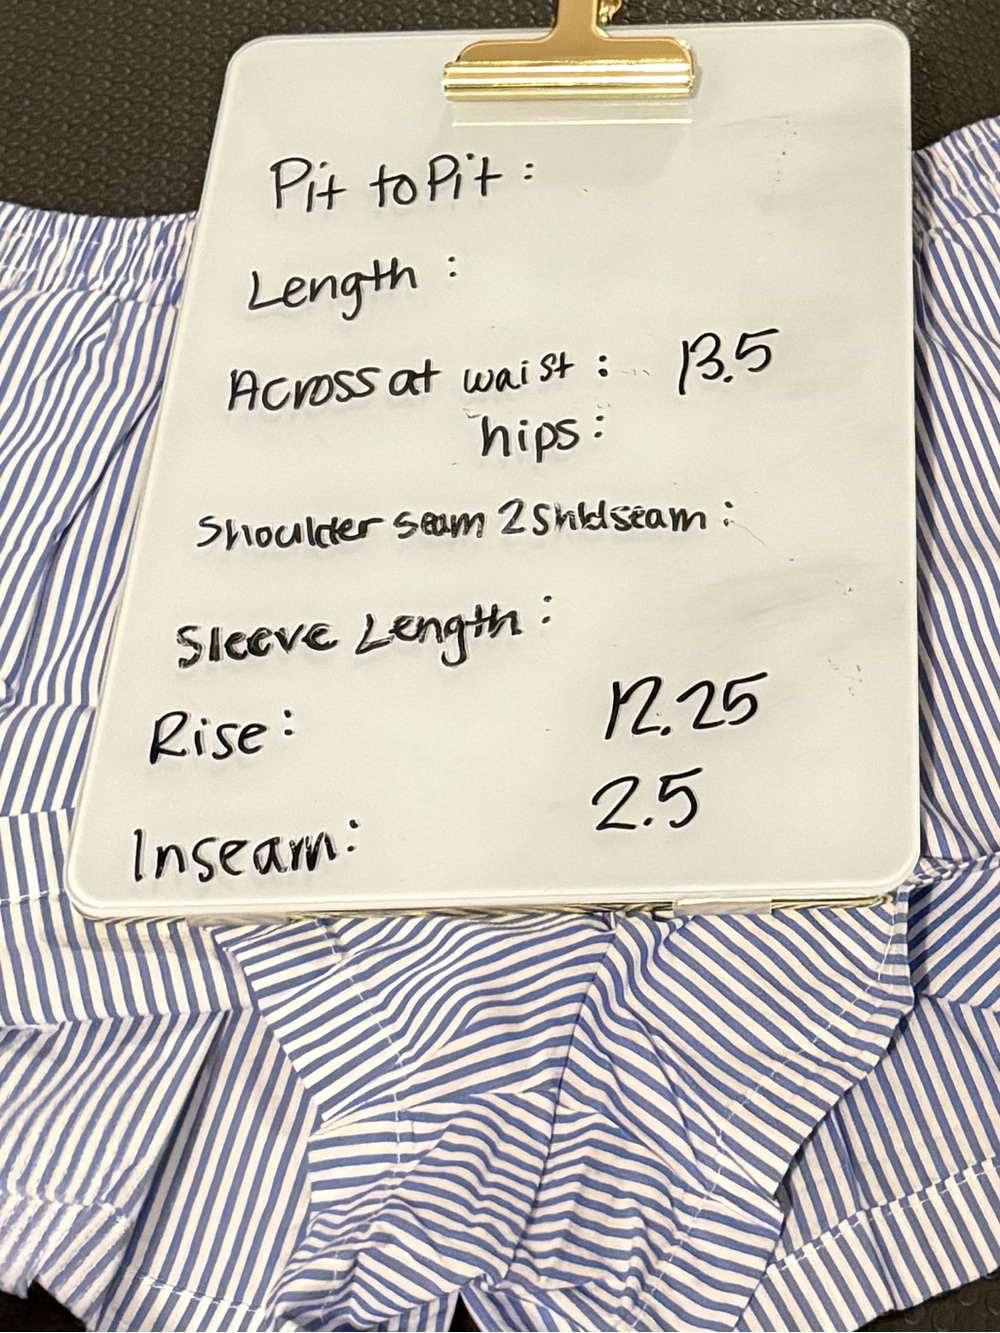 Pit to Pit :
Length :
Across at waist : 13.5
hips :
Shoulder seam 2 Shldseam :
Sleeve Length :
Rise : 12.25
Inseam : 2.5